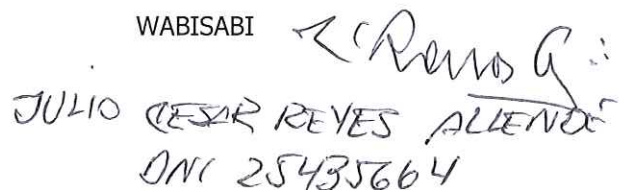 WABISABI
JULIO CESAR REYES ALLENDE
DNI 25435664